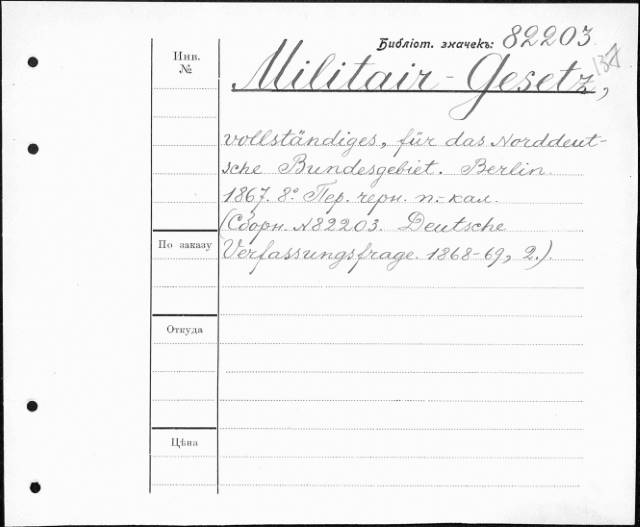 Библіот. значекъ: 82203
137
Инв.
№
Militair-Gesetz,
vollständiges, für das Norddeut-
sche Bundesgebiet. Berlin.
1867. 8° Пер. черн. п.-кал.
(Сборн. №82203. Deutsche
По заказу
Verfassungsfrage. 1868-69, 2.).
Откуда
Цѣна